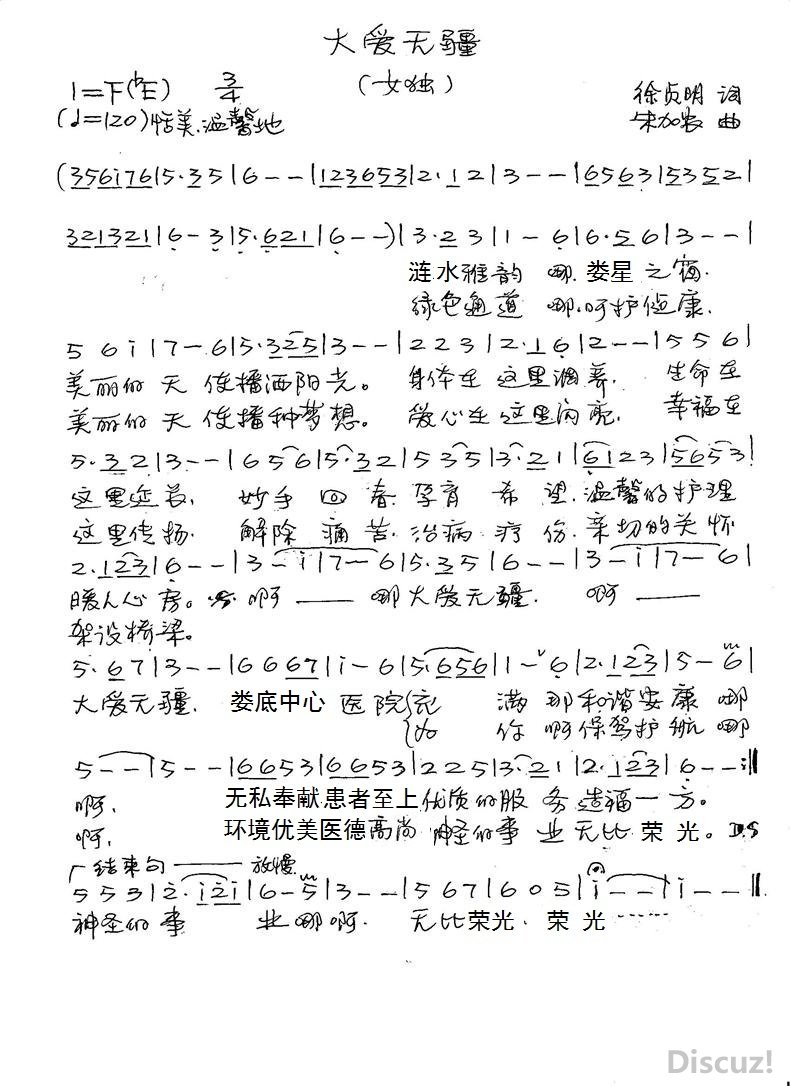 大爱无疆
(女独)
1=F(♭E) 3/4
徐贞明 词
(♩=120)恬美.温馨地
朱加农 曲
(356i76|5·35|6--|123653|2·12|3--|656563|5352|
321321|6-3|5·621|6--)|3·23|1-6|6·56|3--|
涟水雅韵 哪.娄星之宿.
绿色通道 哪.呵护健康.
56i|7-6|5·325|3--|223|2·16|2--|556|
美丽的天使播洒阳光。 身体在这里调养. 生命在
美丽的天使播种梦想。 爱心在这里闪亮. 幸福在
5·32|3--|656|5·32|535|3·21|6123|5653|
这里延长. 妙手回春.孕育希望.温馨的护理
这里传扬. 解除痛苦.治病疗伤.亲切的关怀
2·123|6--|3-i|7-6|5·35|6--|3-i|7-6|
暖人心房。 啊—— 哪大爱无疆. 啊——
架设桥梁。
5·67|3--|6667|i-6|5·656|1-6|2·123|5-6|
大爱无疆. 娄底中心医院 充满那和谐安康哪
为你啊保驾护航哪
5--|5--|6653|6653|225|3·21|2·123|6--:‖
啊, 无私奉献患者至上优质的服务造福一方。
啊, 环境优美医德高尚神圣的事业无比荣光。D.S
结束句—— 放慢
553|2·i2i|6-5|3--|567|605|i--|i--‖
神圣的事 业哪啊. 无比荣光. 荣光------
Discuz!